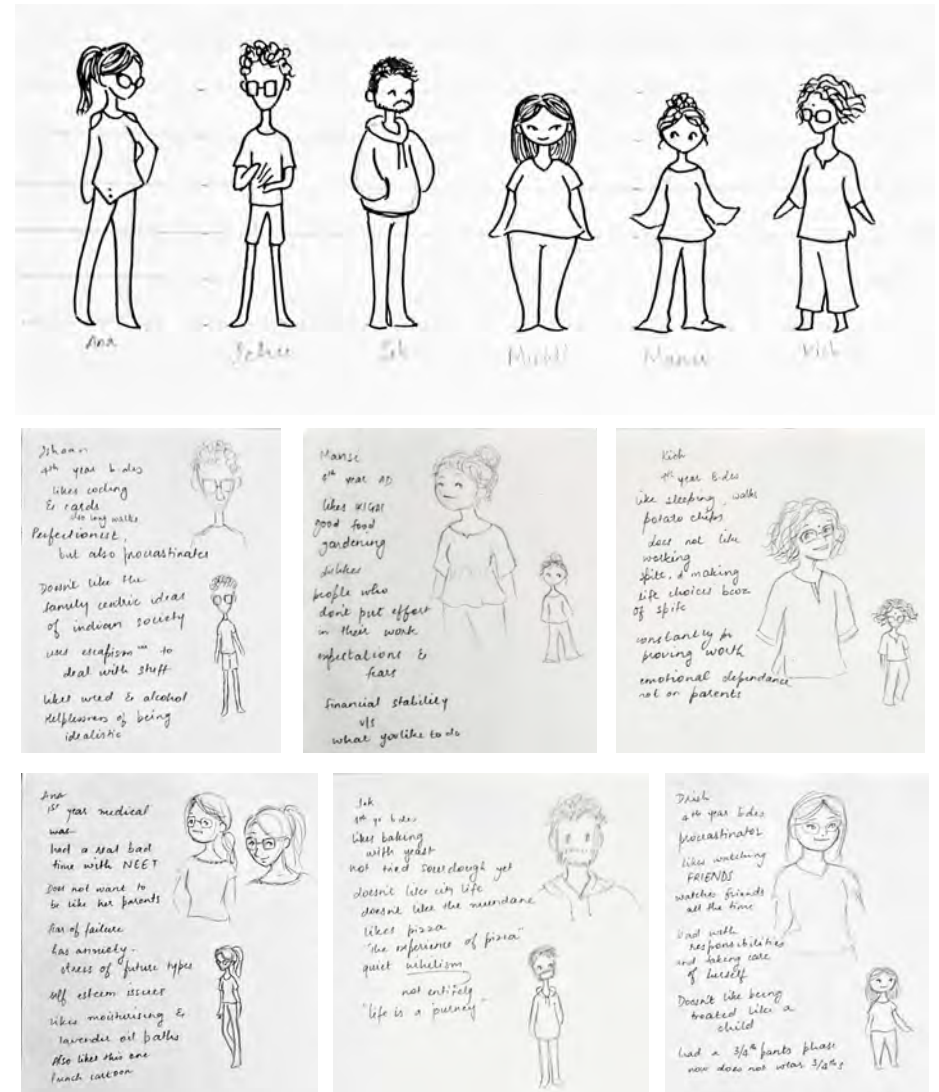 Ana
Ishu
Manu
Kich
Ishaan
4th year b.des
likes coding
& cards
also long walks
Perfectionist,
but also procrastinates
Doesn't like the
family centric ideas
of indian society
uses escapism to
deal with stuff
likes weed & alcohol
Helplessness of being
idealistic
Mansi
4th year
likes
good food
gardening
dislikes
people who
don't put effort
in their work
expectations &
fears
financial stability
v/s
what you like to do
Kich
4th year B.des
like sleeping, walks
potato chips
does not like
working
spite, & making
life choices bcoz
of spite
constantly
proving worth
emotional dependance
not on parents
Ana
1st year medical
was
had a real bad
time with NEET
Does not want to
be like her parents
fear of failure
has anxiety.
stress of future types
self esteem issues
likes moisturising &
lavender oil baths
Also likes this one
french cartoon
4th yr b.des
likes baking
with yeast
not tried sourdough yet
doesn't like city life
doesn't like the mundane
likes pizza
"the experience of pizza"
quiet
not entirely
"life is a journey"
Drish
4th year b.des
procrastinator
likes watching
FRIENDS
watches friends
all the time
bad with
responsibilities
and taking care
of herself
Doesn't like being
treated like a
child
had a 3/4th pants phase
now does not wear 3/4ths